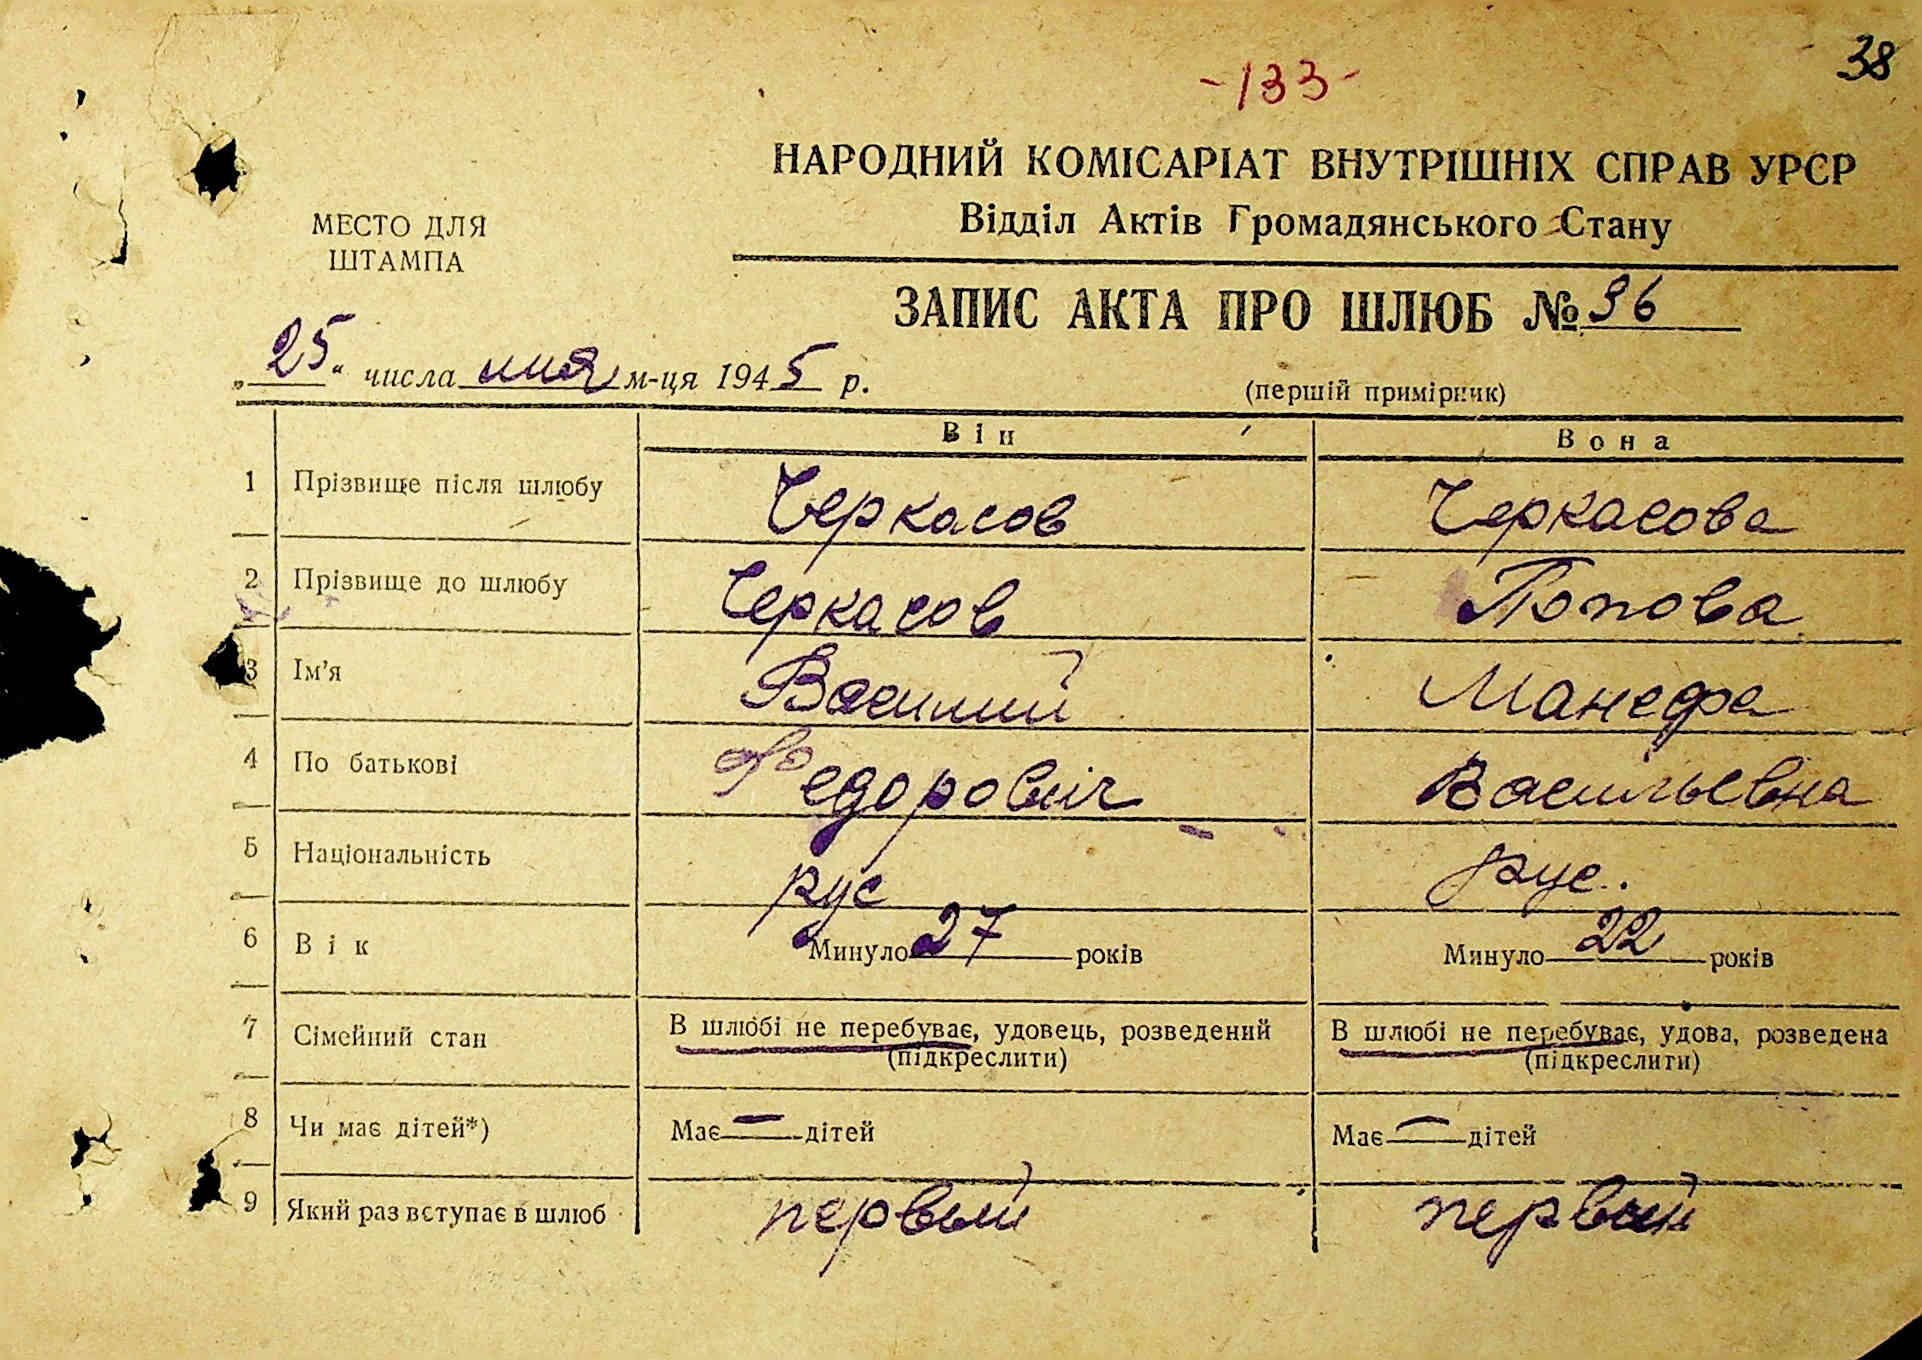 -133-
38
НАРОДНИЙ КОМІСАРІАТ ВНУТРІШНІХ СПРАВ УРСР
Відділ Актів Громадянського Стану
МЕСТО ДЛЯ
ШТАМПА
ЗАПИС АКТА ПРО ШЛЮБ № 96
„25“ числа м-ця 1945 р.
(першій примірник)
Він Вона
1 Прізвище після шлюбу Черкасов Черкасова
2 Прізвище до шлюбу Черкасов Попова
3 Ім'я Василий Манефа
4 По батькові Федорович Васильевна
5 Національність рус рус.
6 Вік Минуло 27 років Минуло 22 років
7 Сімейний стан В шлюбі не перебуває, удовець, розведений В шлюбі не перебуває, удова, розведена
(підкреслити) (підкреслити)
8 Чи має дітей*) Має — дітей Має — дітей
9 Який раз вступає в шлюб первый первый